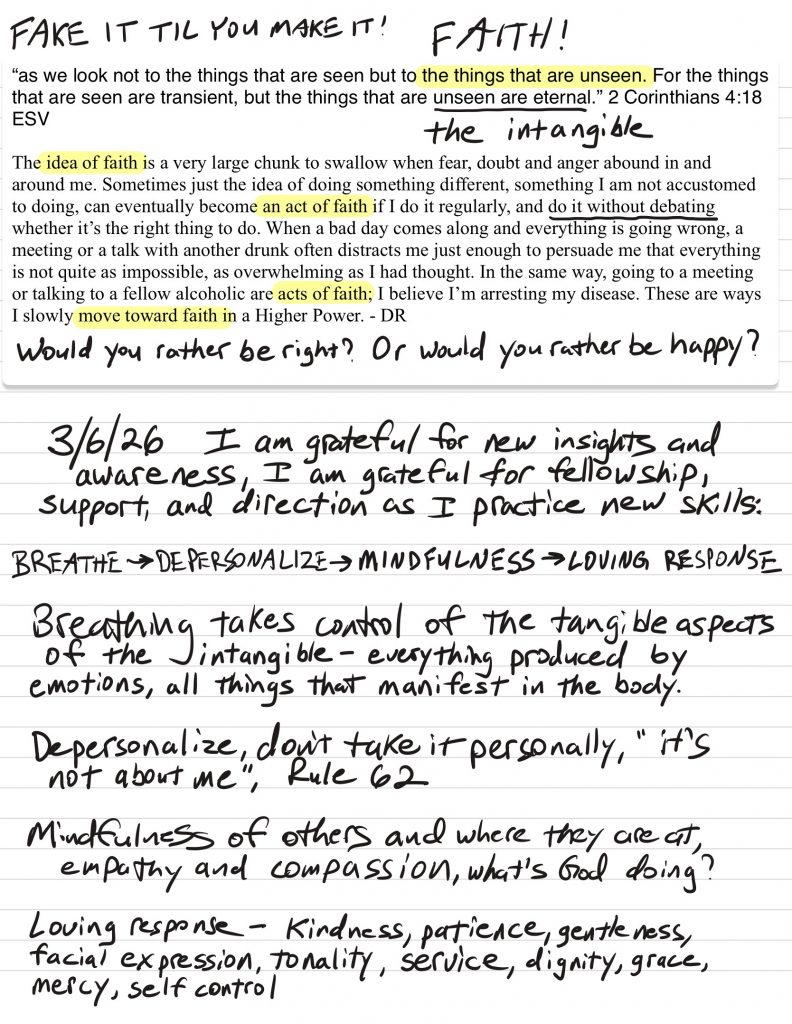 FAKE IT TIL YOU MAKE IT! FAITH!
“as we look not to the things that are seen but to the things that are unseen. For the things
that are seen are transient, but the things that are unseen are eternal.” 2 Corinthians 4:18
ESV
the intangible
The idea of faith is a very large chunk to swallow when fear, doubt and anger abound in and
around me. Sometimes just the idea of doing something different, something I am not accustomed
to doing, can eventually become an act of faith if I do it regularly, and do it without debating
whether it’s the right thing to do. When a bad day comes along and everything is going wrong, a
meeting or a talk with another drunk often distracts me just enough to persuade me that everything
is not quite as impossible, as overwhelming as I had thought. In the same way, going to a meeting
or talking to a fellow alcoholic are acts of faith; I believe I’m arresting my disease. These are ways
I slowly move toward faith in a Higher Power. - DR
Would you rather be right? Or would you rather be happy?
3/6/26 I am grateful for new insights and
awareness, I am grateful for fellowship,
support, and direction as I practice new skills:
BREATHE→DEPERSONALIZE→MINDFULNESS→LOVING RESPONSE
Breathing takes control of the tangible aspects
of the intangible – everything produced by
emotions, all things that manifest in the body.
Depersonalize, don't take it personally, "it's
not about me", Rule 62
Mindfulness of others and where they are at,
empathy and compassion, what's God doing?
Loving response – Kindness, patience, gentleness,
facial expression, tonality, service, dignity, grace,
mercy, self control